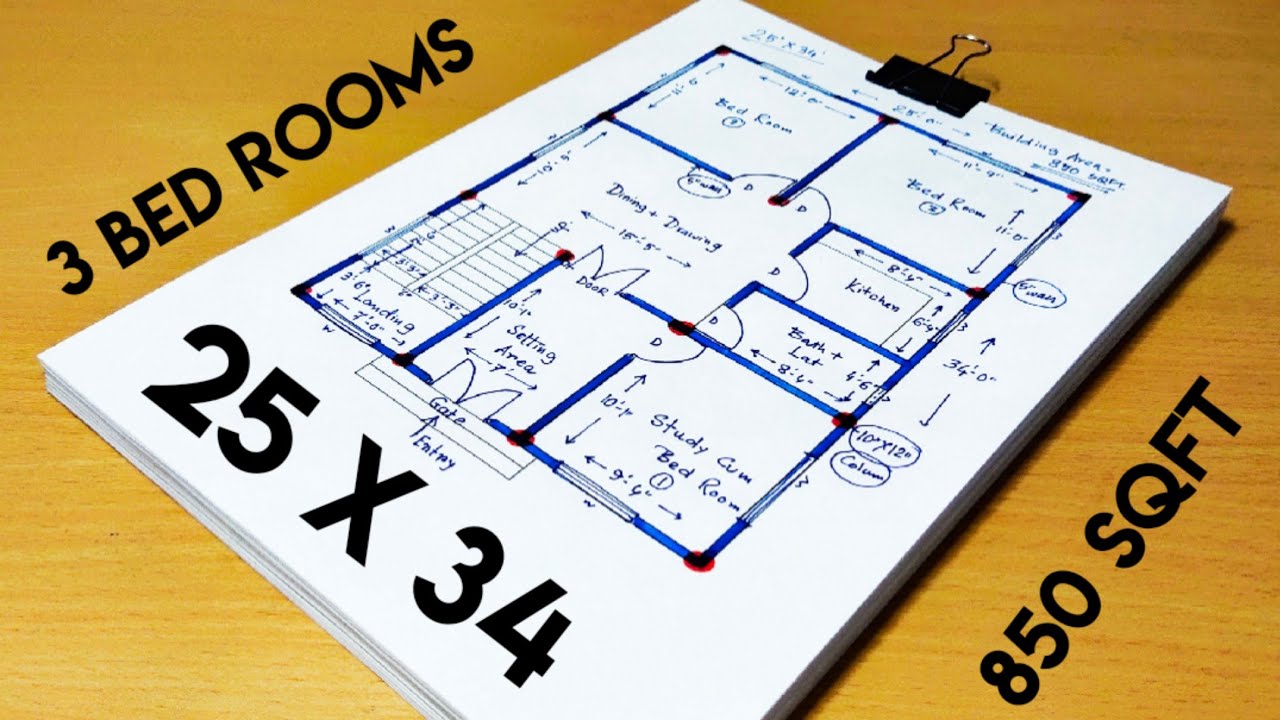 3 BED ROOMS
25' X 34'
25'-0"
Building Area =
850 SQFT.
12'-0"
11'-0"
Bed Room
3
W
11'-4"
Bed Room
2
11'-0"
10'-9"
5" wall
D
D
Dining + Drawing
15'-5"
D
8'-4"
Kitchen
6'-4"
5" wall
34'-0"
DOOR
D
D
Bath +
Lat
8'-4"
4'-6"
W
3'-6"
Landing
7'-0"
W
3'-5"
10'-1"
Setting
Area
7'
Gate
Entry
10'-1"
Study Cum
Bed Room
1
9'-4"
W
10"X12"
Colum
25 X 34
850 SQFT